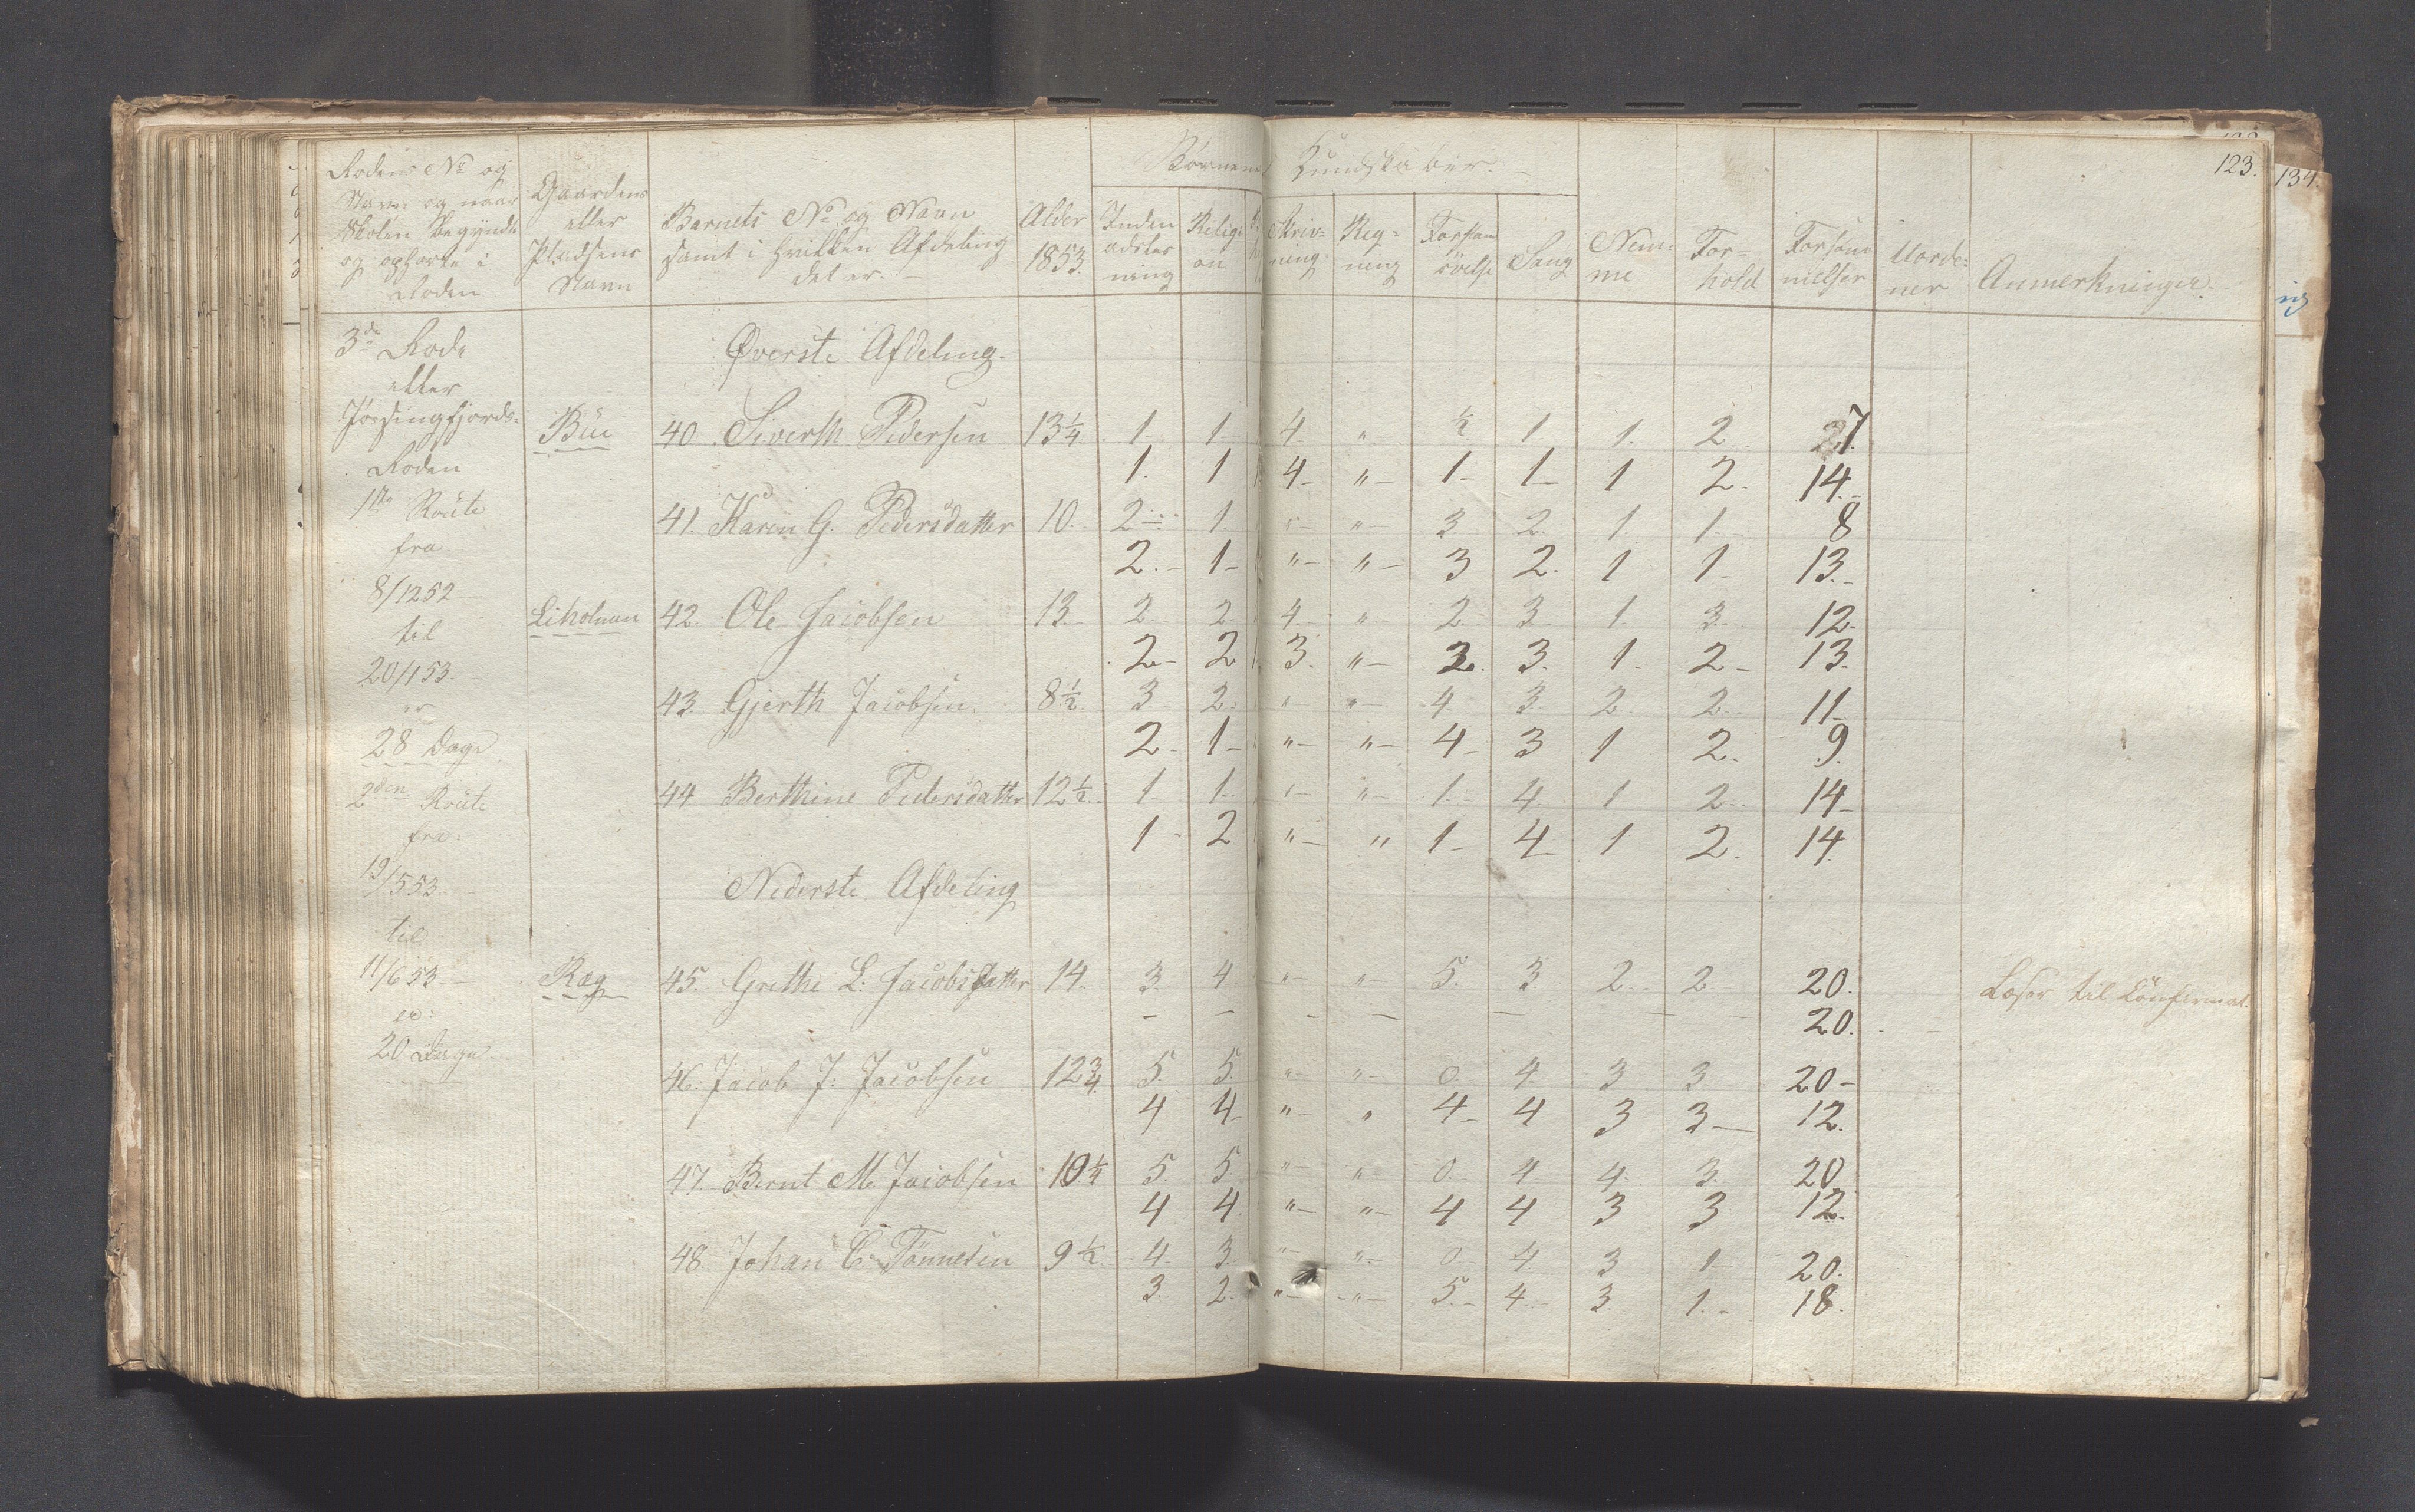 123.
134.
Børnenes Kundskaber.
Rodens No og Navn og naar Skolen begyndte og ophørte i Roden
Gaardens eller Pladsens Navn
Barnets No og Navn samt i hvilken Afdeling det er.
Alder 1853.
Inden adslæsning
Religion
Skrivning
Regning
Forstandsövelse
Sang
Nemme
Forhold
Forsömmelser
Anmerkninger.
3de Rode
eller
Jøssingfjords-
Roden
1ste Route
fra
8/12 52
til
20/1 53
er
28 Dage
2den Route
fra
19/5 53.
til
11/6 53
er:
20 Dage
Øverste Afdeling.
Büe 40 Siverth Pedersen 13¼ 1. 1. 4 " ½ 1 1. 2
1. 1 4- "- 1- 1- 1 2- 14.-
41. Karen G. Pedersdatter 10. 2 1. "- "- 3 2. 1. 1. 8
2.- 1- "- "- 3 2. 1 1- 13.-
Liholmen 42. Ole Jacobsen 13. 2 2. 4 " 2 3. 1. 3. 12.
2- 2 3. "- 2. 3. 1- 2- 13.
43. Gjerth Jacobsen. 8½. 3 2. " "- 4. 3. 2. 2. 11-
2- 1- "- "- 4- 3 1 2. 9.
44 Berthine Pedersdatter 12½ 1. 1. "- "- 1. 4. 1 2. 14-
1- 2 "- " 1- 4- 1 2. 14.
Nederste Afdeling
Ræg 45. Grethe L. Jacobsdatter 14. 3. 4 "- " 5. 3. 2. 2 20. Læser til Confirmat.
- - - - - - - 20.
46. Jacob J. Jacobsen 12¾ 5. 5. "- "- 0. 4. 3 3 20-
4 4- "- " 4- 4 3 3- 12.
47. Bernt M. Jacobsen 10¼ 5. 5 "- " 0. 4 4. 3. 20
4 4. "- "- 4 4 3 3 12.
48. Johan C. Tönnesen 9½. 4. 3. "- "- 0 4 3 1 20.
3. 2. "- "- 5.- 4.- 3. 1.- 18.